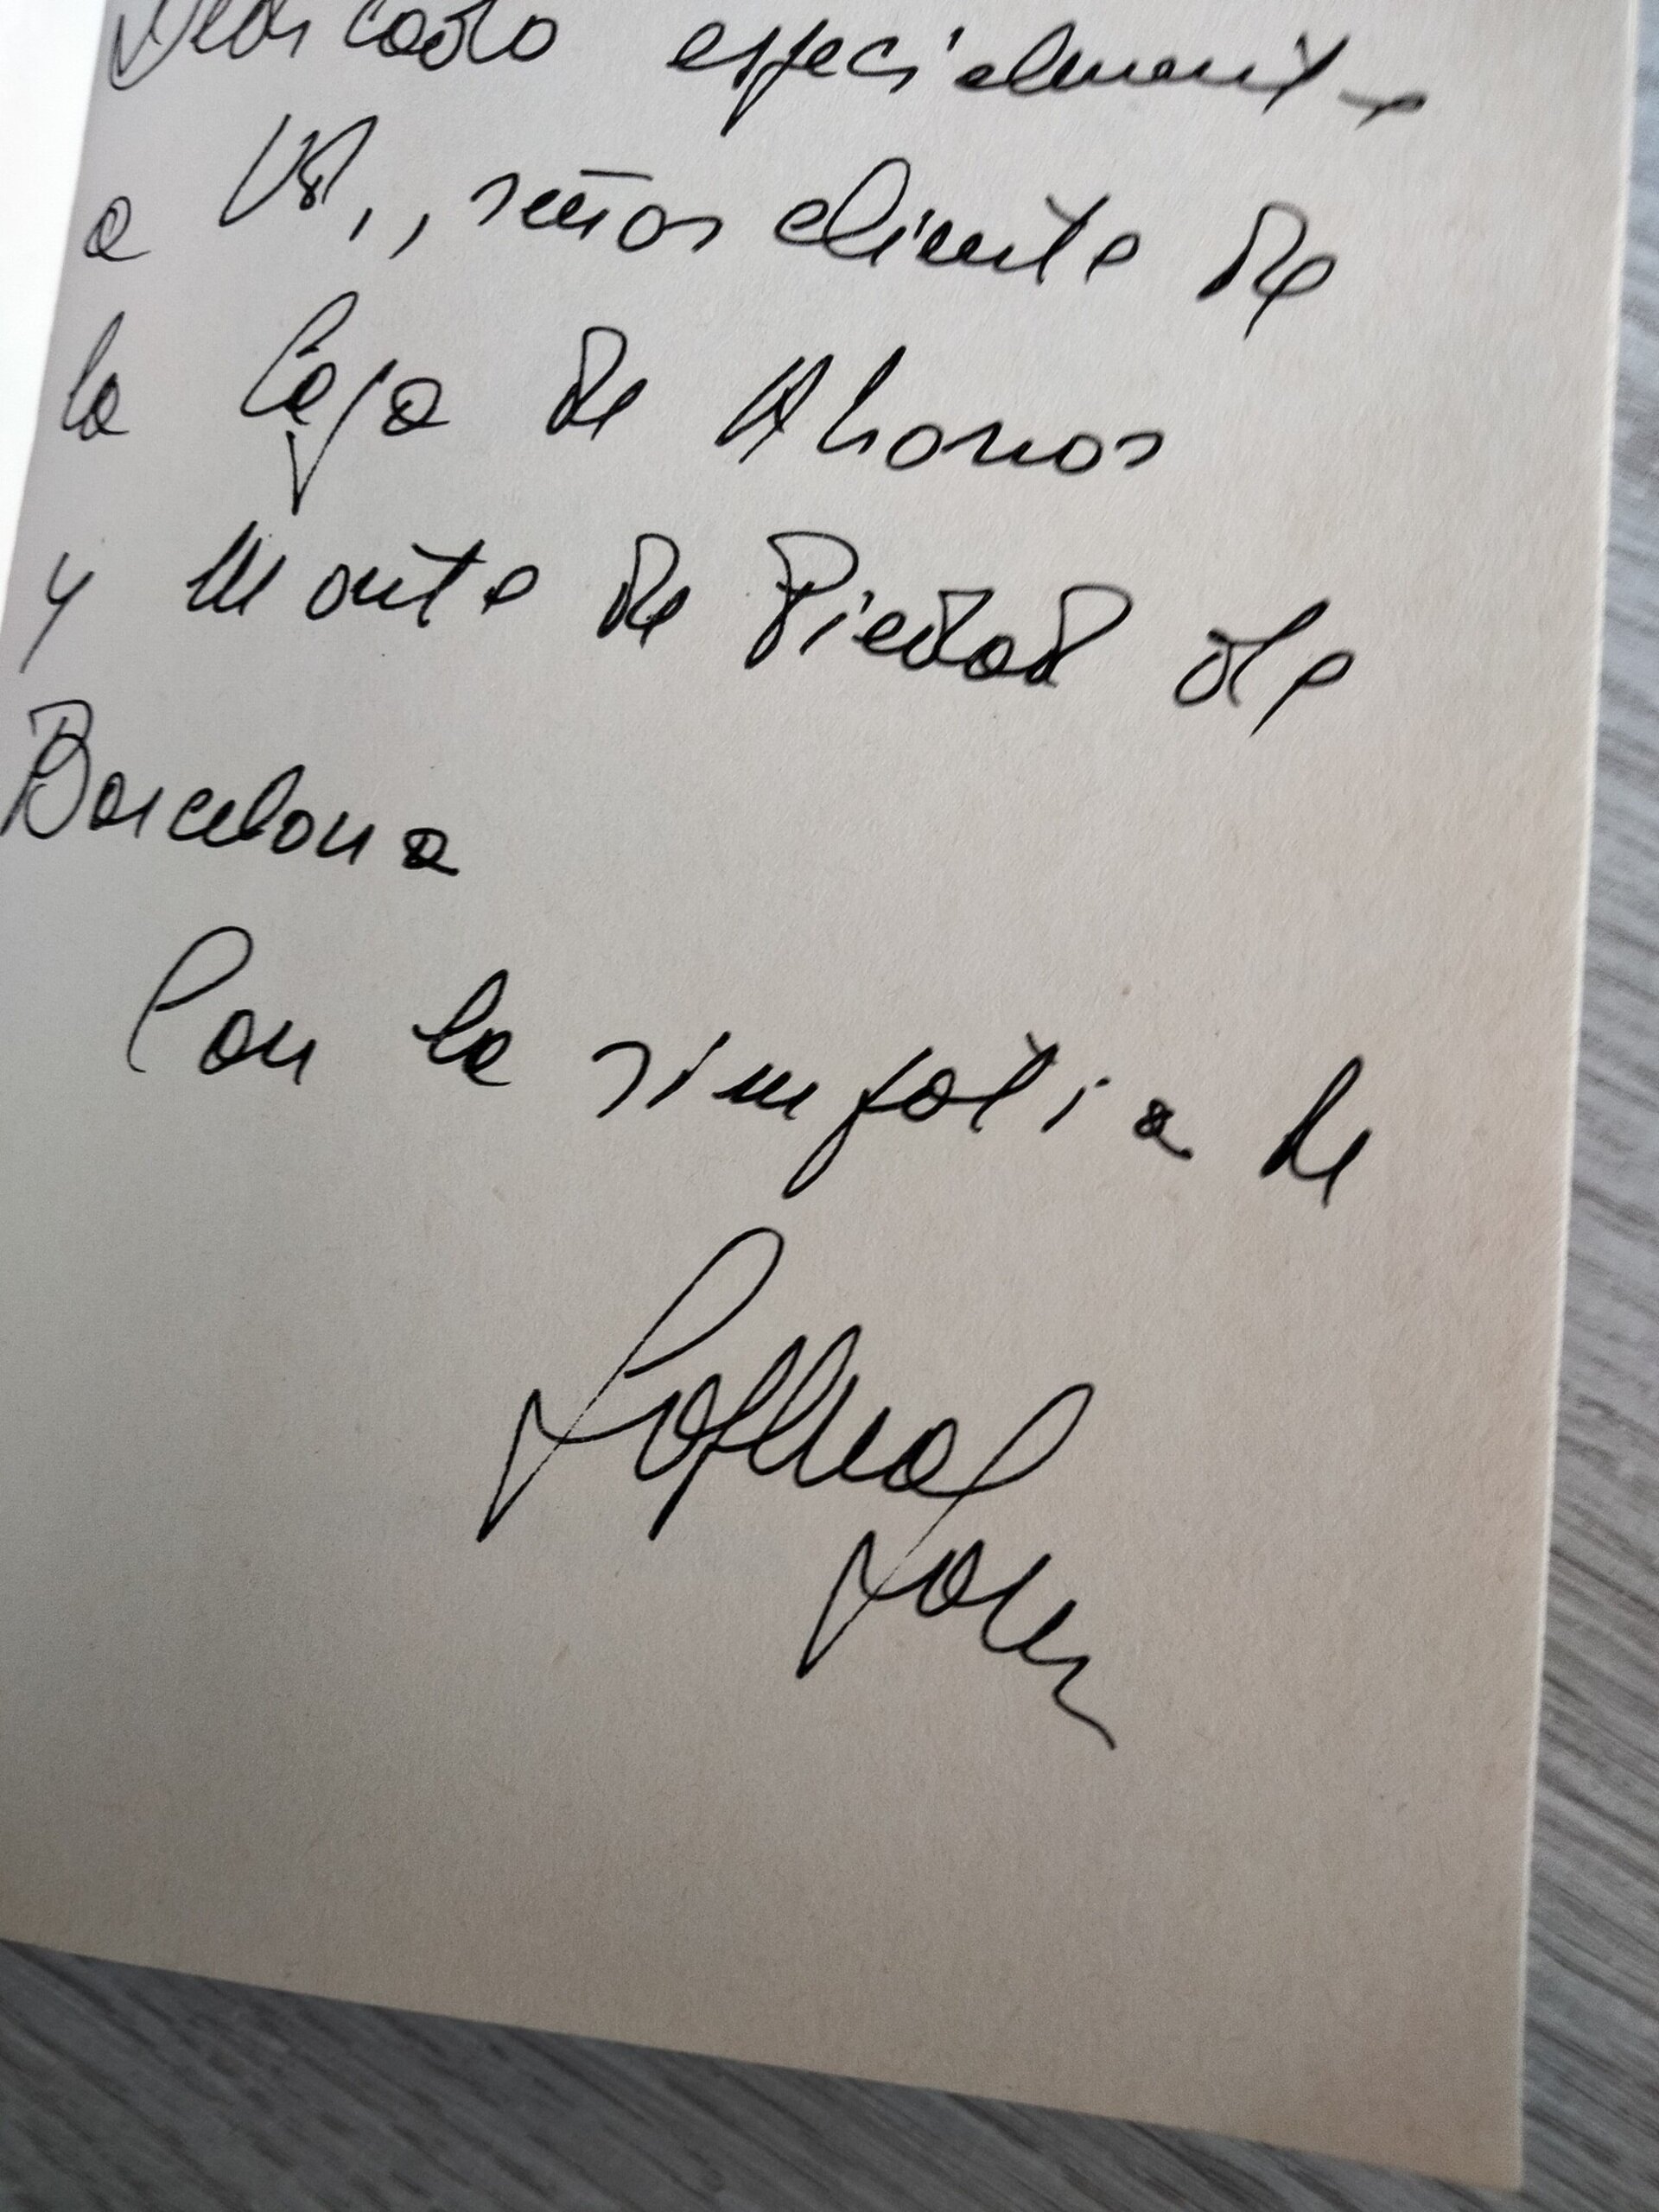 Dedicado especialmente
a Vd., señor cliente de
la Caja de Ahorros
y Monte de Piedad de
Barcelona
Con la simpatia de